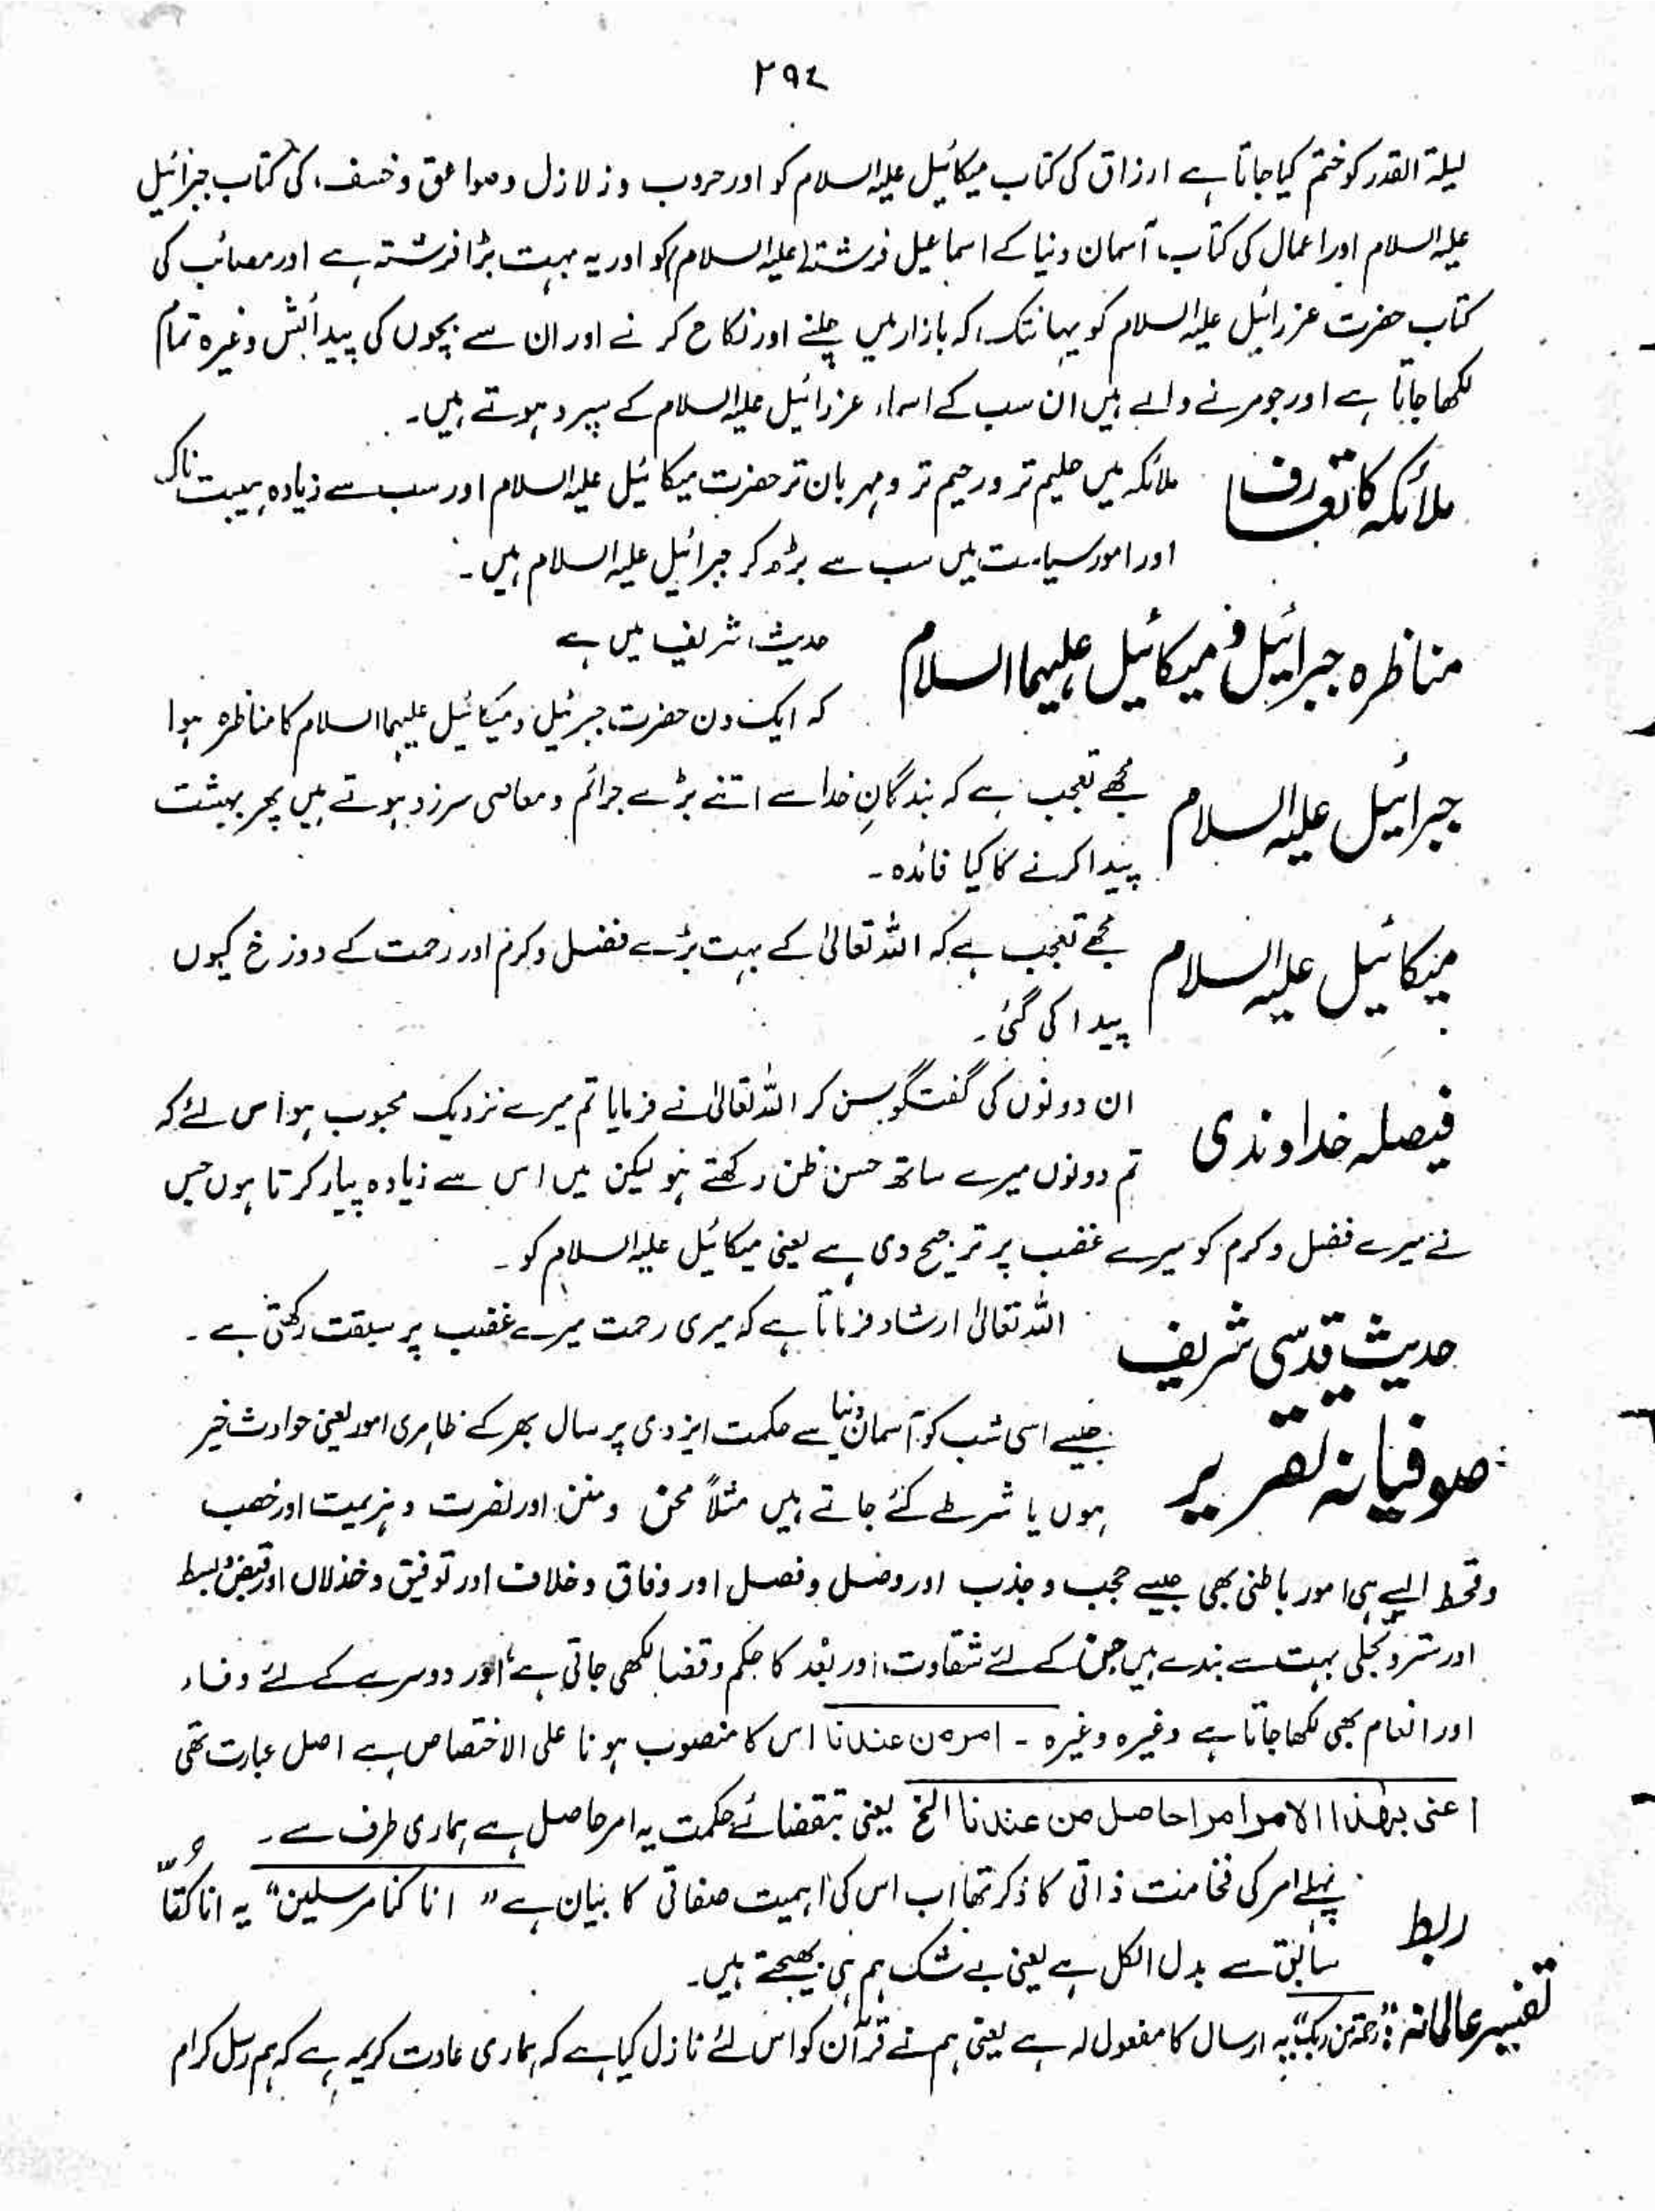 ۲۹٤
لیلۃ القدر کو ختم کیا جاتا ہے ارزاق کی کتاب میکائیل علیہ السلام کو اور حروب و زلازل و صواعق و خسف کی کتاب جبرائیل
علیہ السلام اور اعمال کی کتاب آسمان دنیا کے اسماعیل فرشتہ (علیہ السلام) کو اور یہ بہت بڑا فرشتہ ہے اور مصائب کی
کتاب حضرت عزرائیل علیہ السلام کو یہانتک کہ بازار میں چلنے اور نکاح کرنے اور ان سے بچوں کی پیدائش وغیرہ تمام
لکھا جاتا ہے اور جو مرنے والے ہیں ان سب کے اسماء عزرائیل علیہ السلام کے سپرد ہوتے ہیں۔
ملائکہ کا تعارف
ملائکہ میں حلیم تر و رحیم تر و مہربان تر حضرت میکائیل علیہ السلام اور سب سے زیادہ ہیبت ناک
اور امور سیاست میں سب سے بڑھ کر جبرائیل علیہ السلام ہیں۔
مناظرہ جبرائیل و میکائیل علیہما السلام
حدیث شریف میں ہے
کہ ایک دن حضرت جبرئیل و میکائیل علیہما السلام کا مناظرہ ہوا
جبرائیل علیہ السلام
مجھے تعجب ہے کہ بندگانِ خدا سے اتنے بڑے جرائم و معاصی سرزد ہوتے ہیں پھر بہشت
پیدا کرنے کا کیا فائدہ۔
میکائیل علیہ السلام
مجھے تعجب ہے کہ اللہ تعالیٰ کے بہت بڑے فضل و کرم اور رحمت کے دوزخ کیوں
پیدا کی گئی۔
فیصلہ خداوندی
ان دونوں کی گفتگو سن کر اللہ تعالیٰ نے فرمایا تم میرے نزدیک محبوب ہو اس لئے کہ
تم دونوں میرے ساتھ حسن ظن رکھتے ہو لیکن میں اس سے زیادہ پیار کرتا ہوں جس
نے میرے فضل و کرم کو میرے غضب پر ترجیح دی ہے یعنی میکائیل علیہ السلام کو۔
حدیث قدسی شریف
اللہ تعالیٰ ارشاد فرماتا ہے کہ میری رحمت میرے غضب پر سبقت رکھتی ہے۔
صوفیانہ تقریر
جیسے اسی شب کو آسمان دنیا سے حکمت ایزدی پر سال بھر کے ظاہری امور یعنی حوادث خیر
ہوں یا شر طے کئے جاتے ہیں مثلاً محن و منن اور نصرت و ہزیمت اور خصب
و قحط ایسے ہی امور باطنی بھی جیسے حجب و جذب اور وصل و فصل اور وفاق و خلاف اور توفیق و خذلان اور قبض و بسط
اور ستر و تجلی بہت سے بندے ہیں جن کے لئے شقاوت اور بُعد کا حکم و قضا لکھی جاتی ہے اور دوسرے کے لئے وفاء
اور انعام بھی لکھا جاتا ہے وغیرہ وغیرہ۔ امر من عندنا اس کا منصوب ہونا علی الاختصاص ہے اصل عبارت تھی
اعنی بھذا الامر امرا حاصل من عندنا الخ یعنی بتقضائے حکمت یہ امر حاصل ہے ہماری طرف سے۔
ربط
پہلے امر کی فخامت ذاتی کا ذکر تھا اب اس کی اہمیت صفاتی کا بیان ہے "انا کنا مرسلین" یہ انا کُنّا
سابق سے بدل الکل ہے یعنی بے شک ہم ہی بھیجتے ہیں۔
تفسیر عالمانہ: "رحمۃ من ربک" یہ ارسال کا مفعول لہ ہے یعنی ہم نے قرآن کو اس لئے نازل کیا ہے کہ ہماری عادت کریمہ ہے کہ ہم رسل کرام